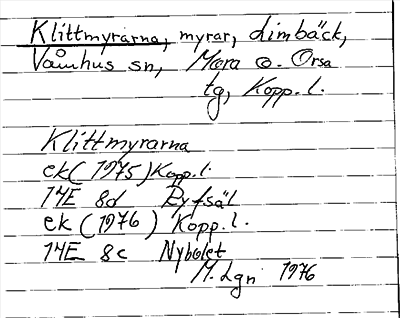 Klittmyrarna, myrar, Limbäck,
Våmhus sn, Mora o. Orsa
tg, Kopp. l.
Klittmyrarna
ek (1975) Kopp. l.
14E 8d Ryfsäl
ek (1976) Kopp. l.
14E 8c Nybolet
M. Lgn 1976